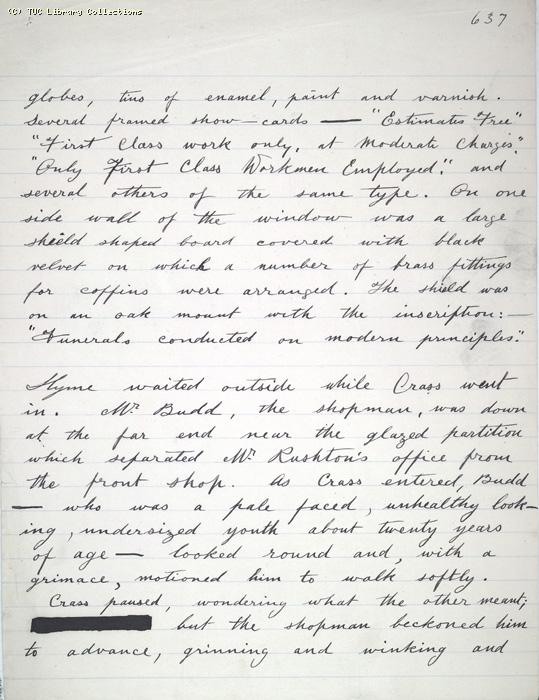 (C) TUC Library Collections
637
globes, tins of enamel, paint and varnish.
Several framed show-cards — "Estimates Free"
"First Class work only, at Moderate Charges."
"Only First Class Workmen Employed." and
several others of the same type. On one
side wall of the window was a large
shield shaped board covered with black
velvet on which a number of brass fittings
for coffins were arranged. The shield was
on an oak mount with the inscription:—
"Funerals conducted on modern principles."
Slyme waited outside while Crass went
in. Mr Budd, the shopman, was down
at the far end near the glazed partition
which separated Mr Rushton's office from
the front shop. As Crass entered, Budd
— who was a pale faced, unhealthy look-
ing, undersized youth about twenty years
of age — looked round and, with a
grimace, motioned him to walk softly.
Crass paused, wondering what the other meant;
but the shopman beckoned him
to advance, grinning and winking and